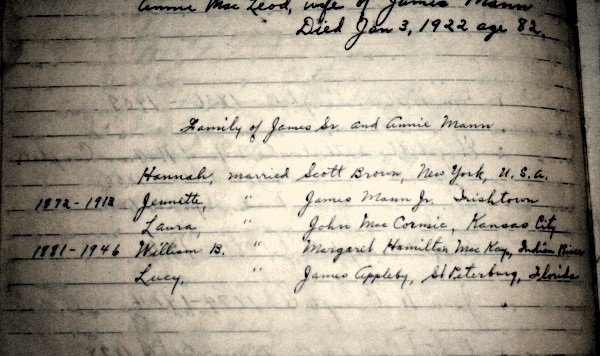 Annie Mac Leod, wife of James Mann
Died Jan 3, 1922 age 82.
Family of James Sr. and Annie Mann.
Hannah, married Scott Brown, New York, U.S.A.
1872-1913 Jennette, " James Mann Jr. Irishtown
Laura, " John Mac Cormic, Kansas City
1881-1946 William B. " Margaret Hamilton Mac Kay, Indian River
Lucy, " James Appleby, St Peterburg, Florida